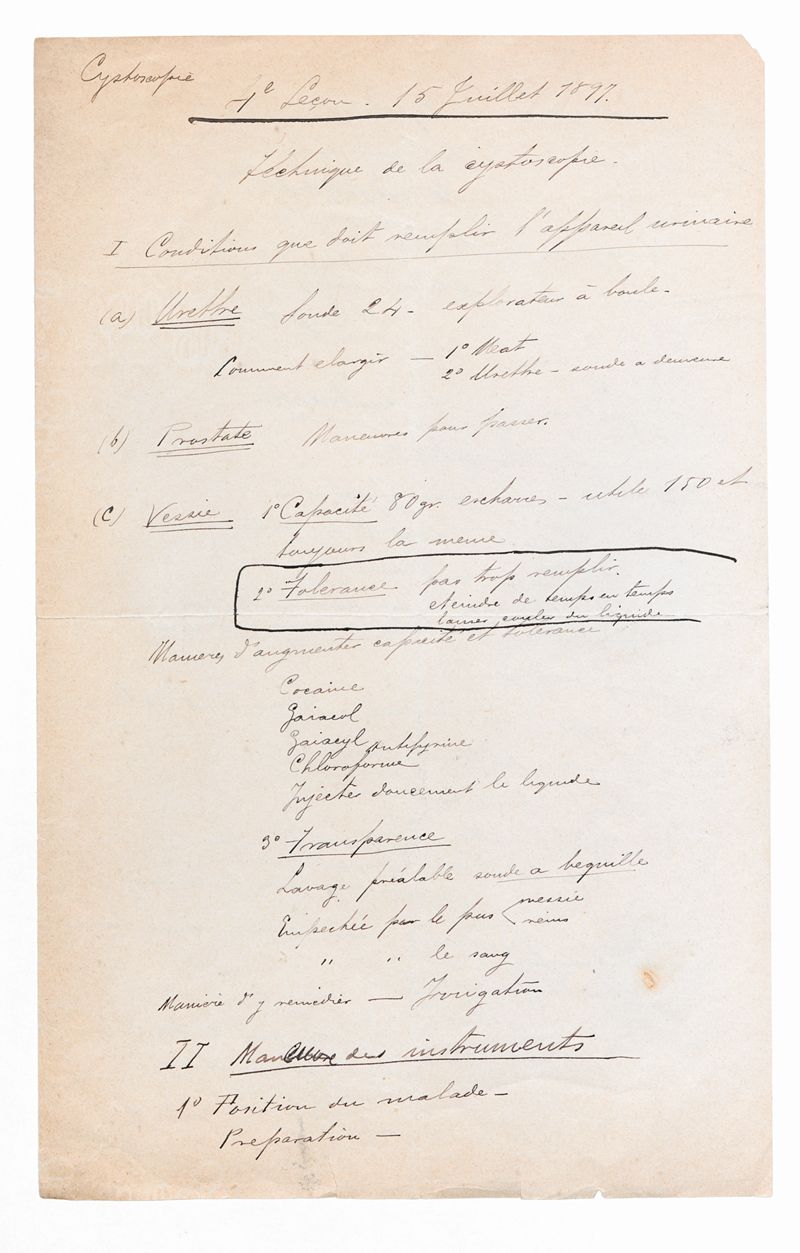 Cystoscopie
4e Leçon - 15 Juillet 1897.
Téchnique de la cystoscopie -
I Conditions que doit remplir l'appareil urinaire
(a) Urethre Sonde 24 - explorateur à boule -
Comment elargir — 1º Meat
2º Urethre - sonde a demeure
(b) Prostate Manœuvres pour passer.
(c) Vessie 1º Capacité 80 gr. escharres - utile 150 et
toujours la meme
2º Tolerance pas trop remplir.
eteindre de temps en temps
laisser couler du liquide
Manieres d'augmenter capacité et tolerance
Cocaine
Gaiacol
Gaiacyl antipyrine
Chloroforme
Injecter doucement le liquide
3º Transparence
Lavage préalable sonde a bequille
Empechée par le pus < vessie
reins
" " le sang
Manière d'y remedier — Irrigation
II Manœuvre des instruments
1º Position du malade —
Preparation —